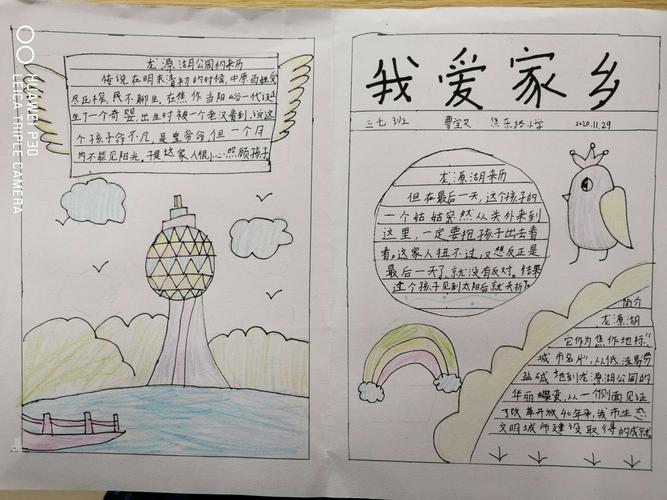 HUAWEI P30
LEICA TRIPLE CAMERA
龙源湖公园的来历
传说在明末清初的时候,中原百姓受
尽压榨,民不聊生,在焦作当阳峪一代诞
生了一个奇婴,出生时被一个老汉看到,说这
个孩子命不凡,是皇帝命,但一个月
内不能见阳光。于是这家人很小心照顾孩子
我爱家乡
三七班
焦东路小学
2020.11.29
龙源湖来历
但在最后一天,这个孩子的
一个姑姑突然从夫外来到
这里,一定要抱孩子出去看
看。这家人扭不过,又想反正是
最后一天了,就没有反对。结果
这个孩子见到太阳后就夭折了
简介
龙源湖
它作为焦作地标,"
城市名片",从低洼易涝
盐碱地到龙源湖公园的
华丽蝶变,从一个侧面见证
了改革开放40年来,我市生态
文明城市建设取得的成就